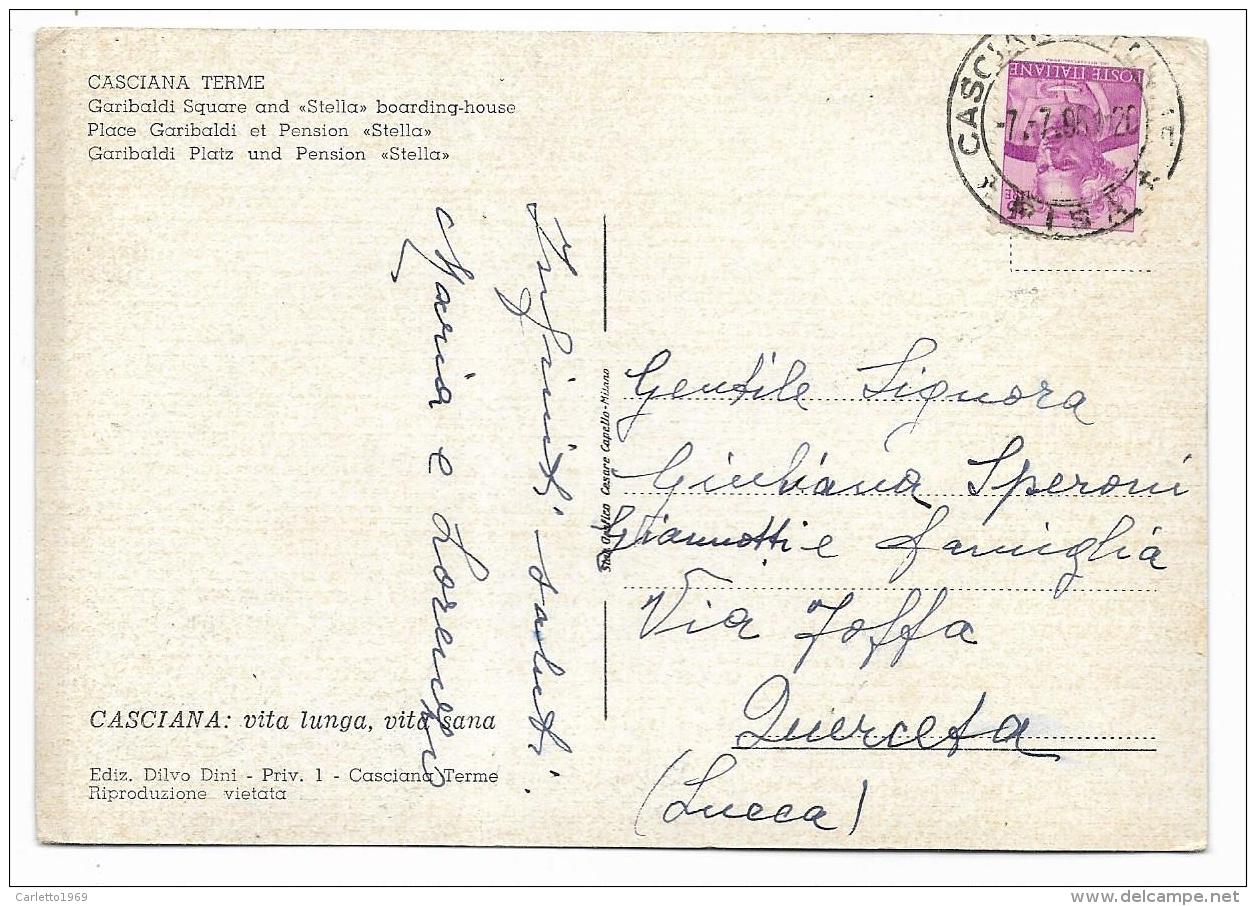 CASCIANA TERME
Garibaldi Square and «Stella» boarding-house
Place Garibaldi et Pension «Stella»
Garibaldi Platz und Pension «Stella»
Infiniti saluti
Maria e Lorenzo
CASCIANA: vita lunga, vita sana
Ediz. Dilvo Dini - Priv. 1 - Casciana Terme
Riproduzione vietata
Stab. Grafico Cesare Capello - Milano
POSTE ITALIANE
CASCIANA TERME
PISA
Gentile Signora
Giuliana Speroni
Giannotti e famiglia
Via
Querceta
(Lucca)
Carletto1969
www.delcampe.net